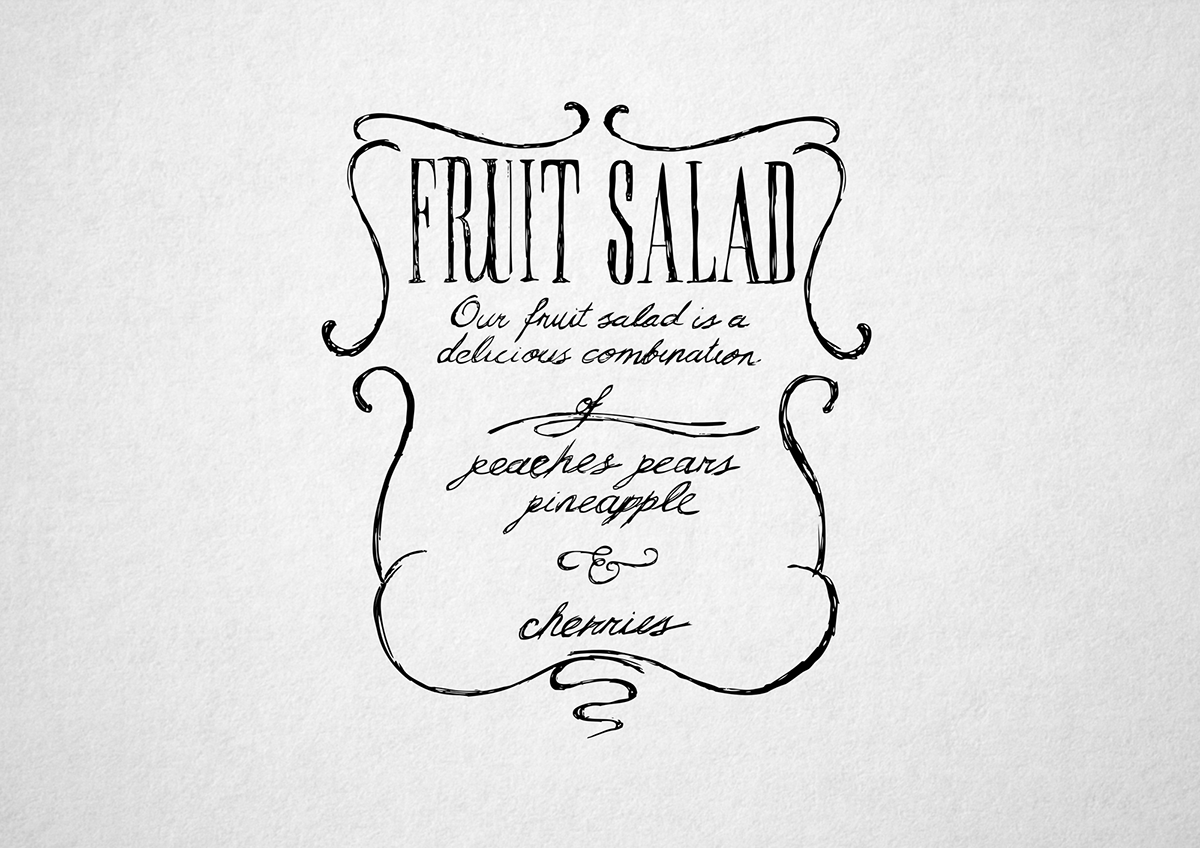 FRUIT SALAD
Our fruit salad is a
delicious combination
of
peaches pears
pineapple
&
cherries